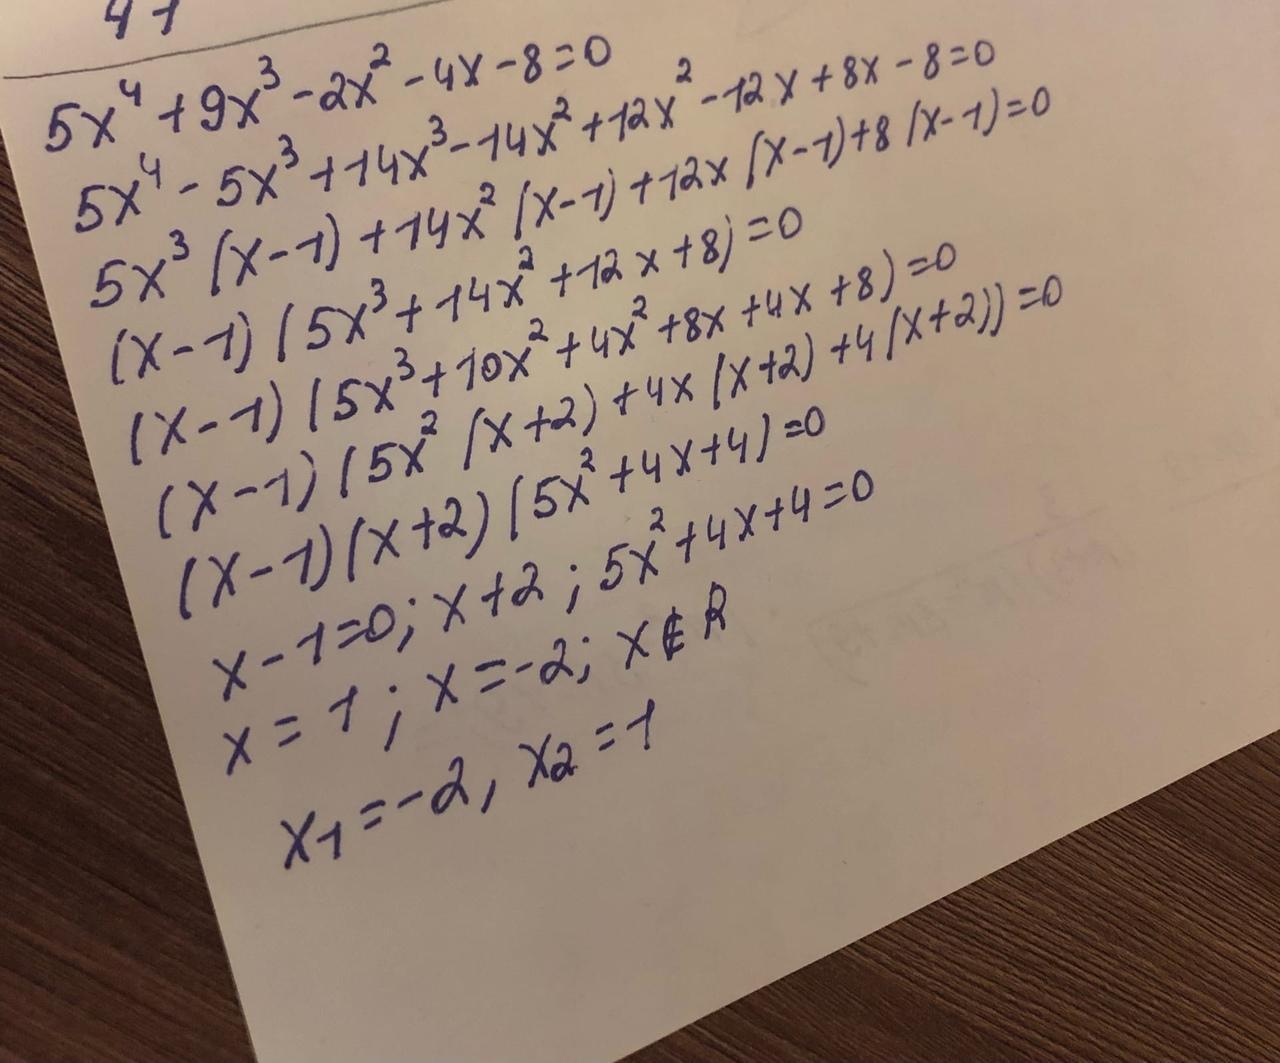 5x⁴+9x³-2x²-4x-8=0
5x⁴-5x³+14x³-14x²+12x²-12x+8x-8=0
5x³(x-1)+14x²(x-1)+12x(x-1)+8(x-1)=0
(x-1)(5x³+14x²+12x+8)=0
(x-1)(5x³+10x²+4x²+8x+4x+8)=0
(x-1)(5x²(x+2)+4x(x+2)+4(x+2))=0
(x-1)(x+2)(5x²+4x+4)=0
x-1=0; x+2; 5x²+4x+4=0
x=1; x=-2; x∉R
x₁=-2, x₂=1